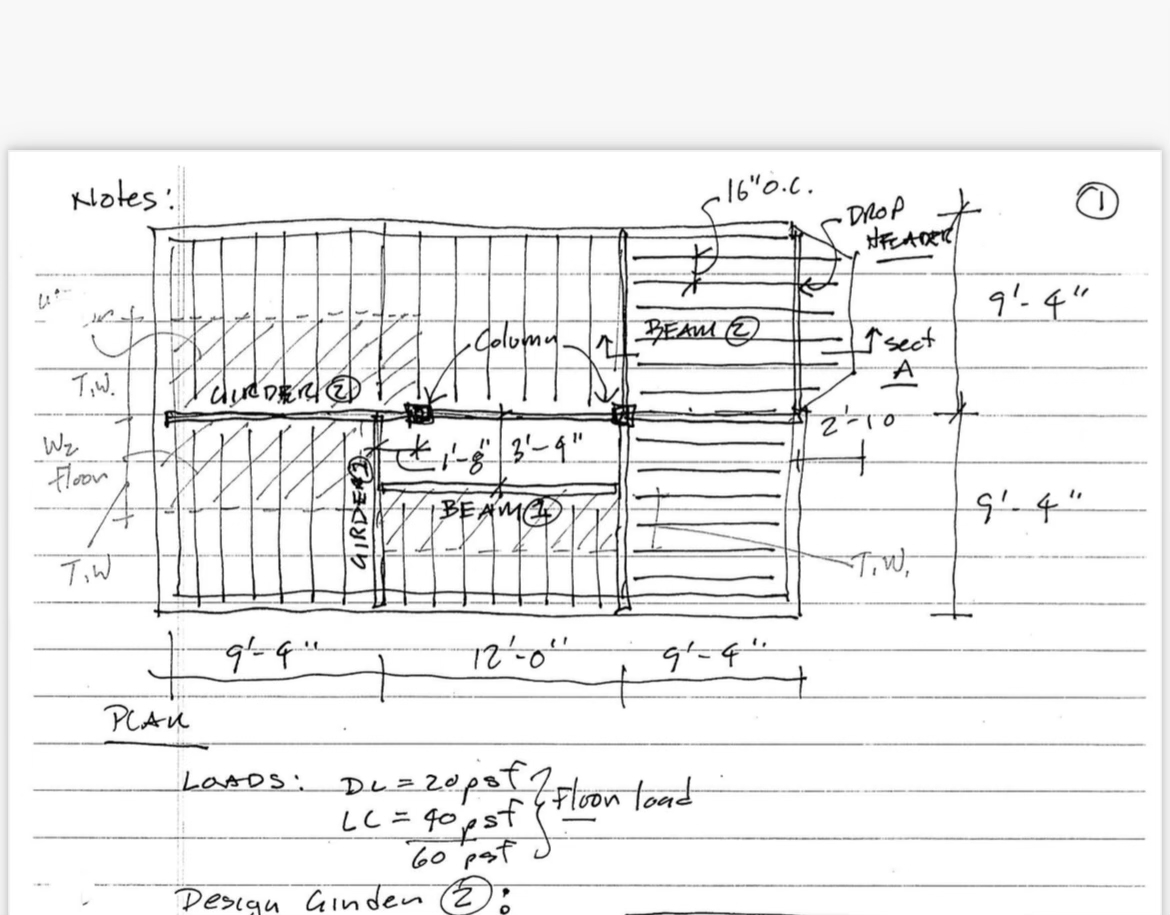 Notes:
①
16" O.C.
DROP
HEADER
9'-4"
Column
BEAM ②
sect
A
T.W.
GIRDER ②
2'-10
W2
Floor
1'-8"
3'-4"
GIRDER
BEAM
9'-4"
T.W
T.W.
9'-4"
12'-0"
9'-4"
PLAN
LOADS: DL = 20 psf
LL = 40 psf
Floor load
60 psf
Design Girder ②: